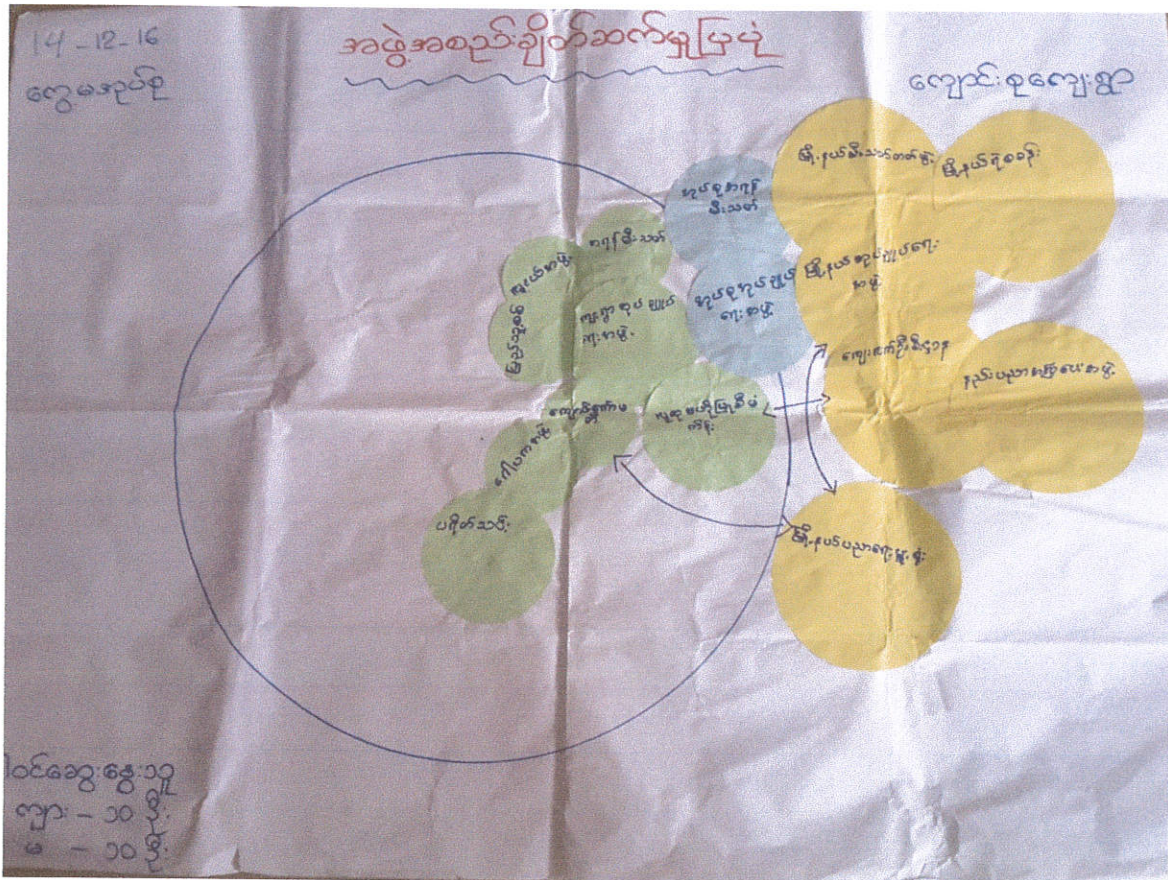 14-12-16
အဖွဲ့အစည်းချိတ်ဆက်မှုပြပုံ
ကွေ့မအုပ်စု
ကျောင်းစုကျေးရွာ
မြို့နယ်မီးသတ်တပ်ဖွဲ့
မြို့နယ်ရဲစခန်း
အုပ်စုအရန်
မီးသတ်
အရန်မီးသတ်
မြို့နယ်အုပ်ချုပ်ရေး
အဖွဲ့
အုပ်စုအုပ်ချုပ်
ရေးအဖွဲ့
ကျေးရွာအုပ်ချုပ်
ရေးအဖွဲ့
ပြည်သူ့စစ်
ကျေးလက်ဦးစီးဌာန
နည်းပညာအကူပေးအဖွဲ့
လူထုဗဟိုပြုစီမံ
ကိန်း
ဂေါပကအဖွဲ့
ပရိတ်သင်း
မြို့နယ်ပညာရေးမှူးရုံး
ပါဝင်ဆွေးနွေးသူ
ကျား - ၁၀ ဦး
မ - ၁၀ ဦး